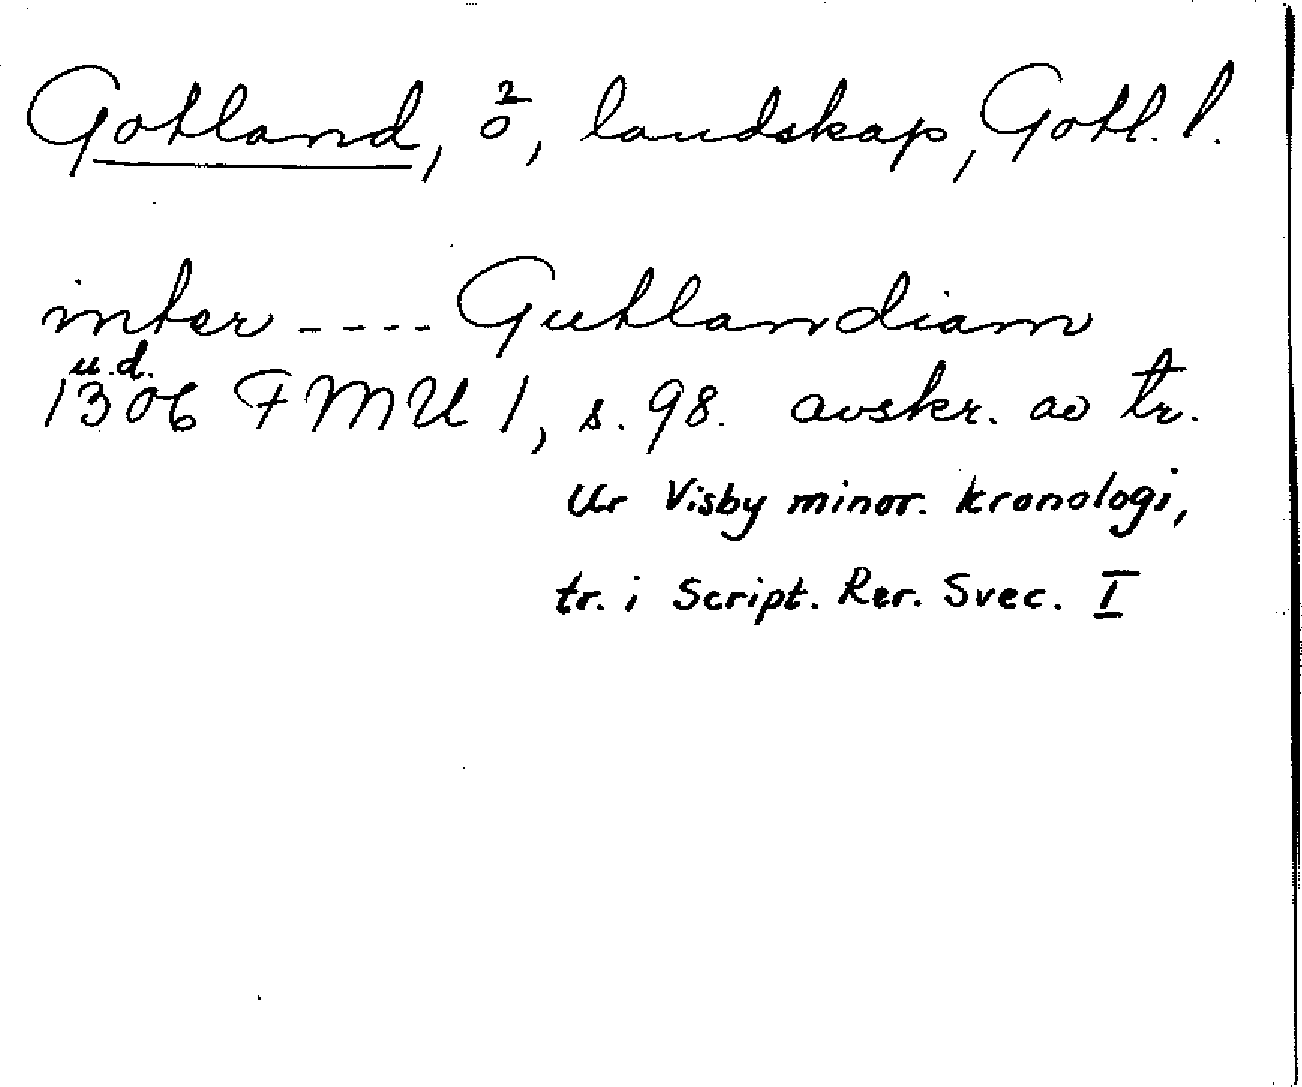 Gotland, ö, landskap, Gotl. l.
inter ---- Gutlandiam
u.d.
1306 FMU 1, s. 98. avskr. av tr.
Ur Visby minor. kronologi,
tr. i Script. Rer. Svec. I